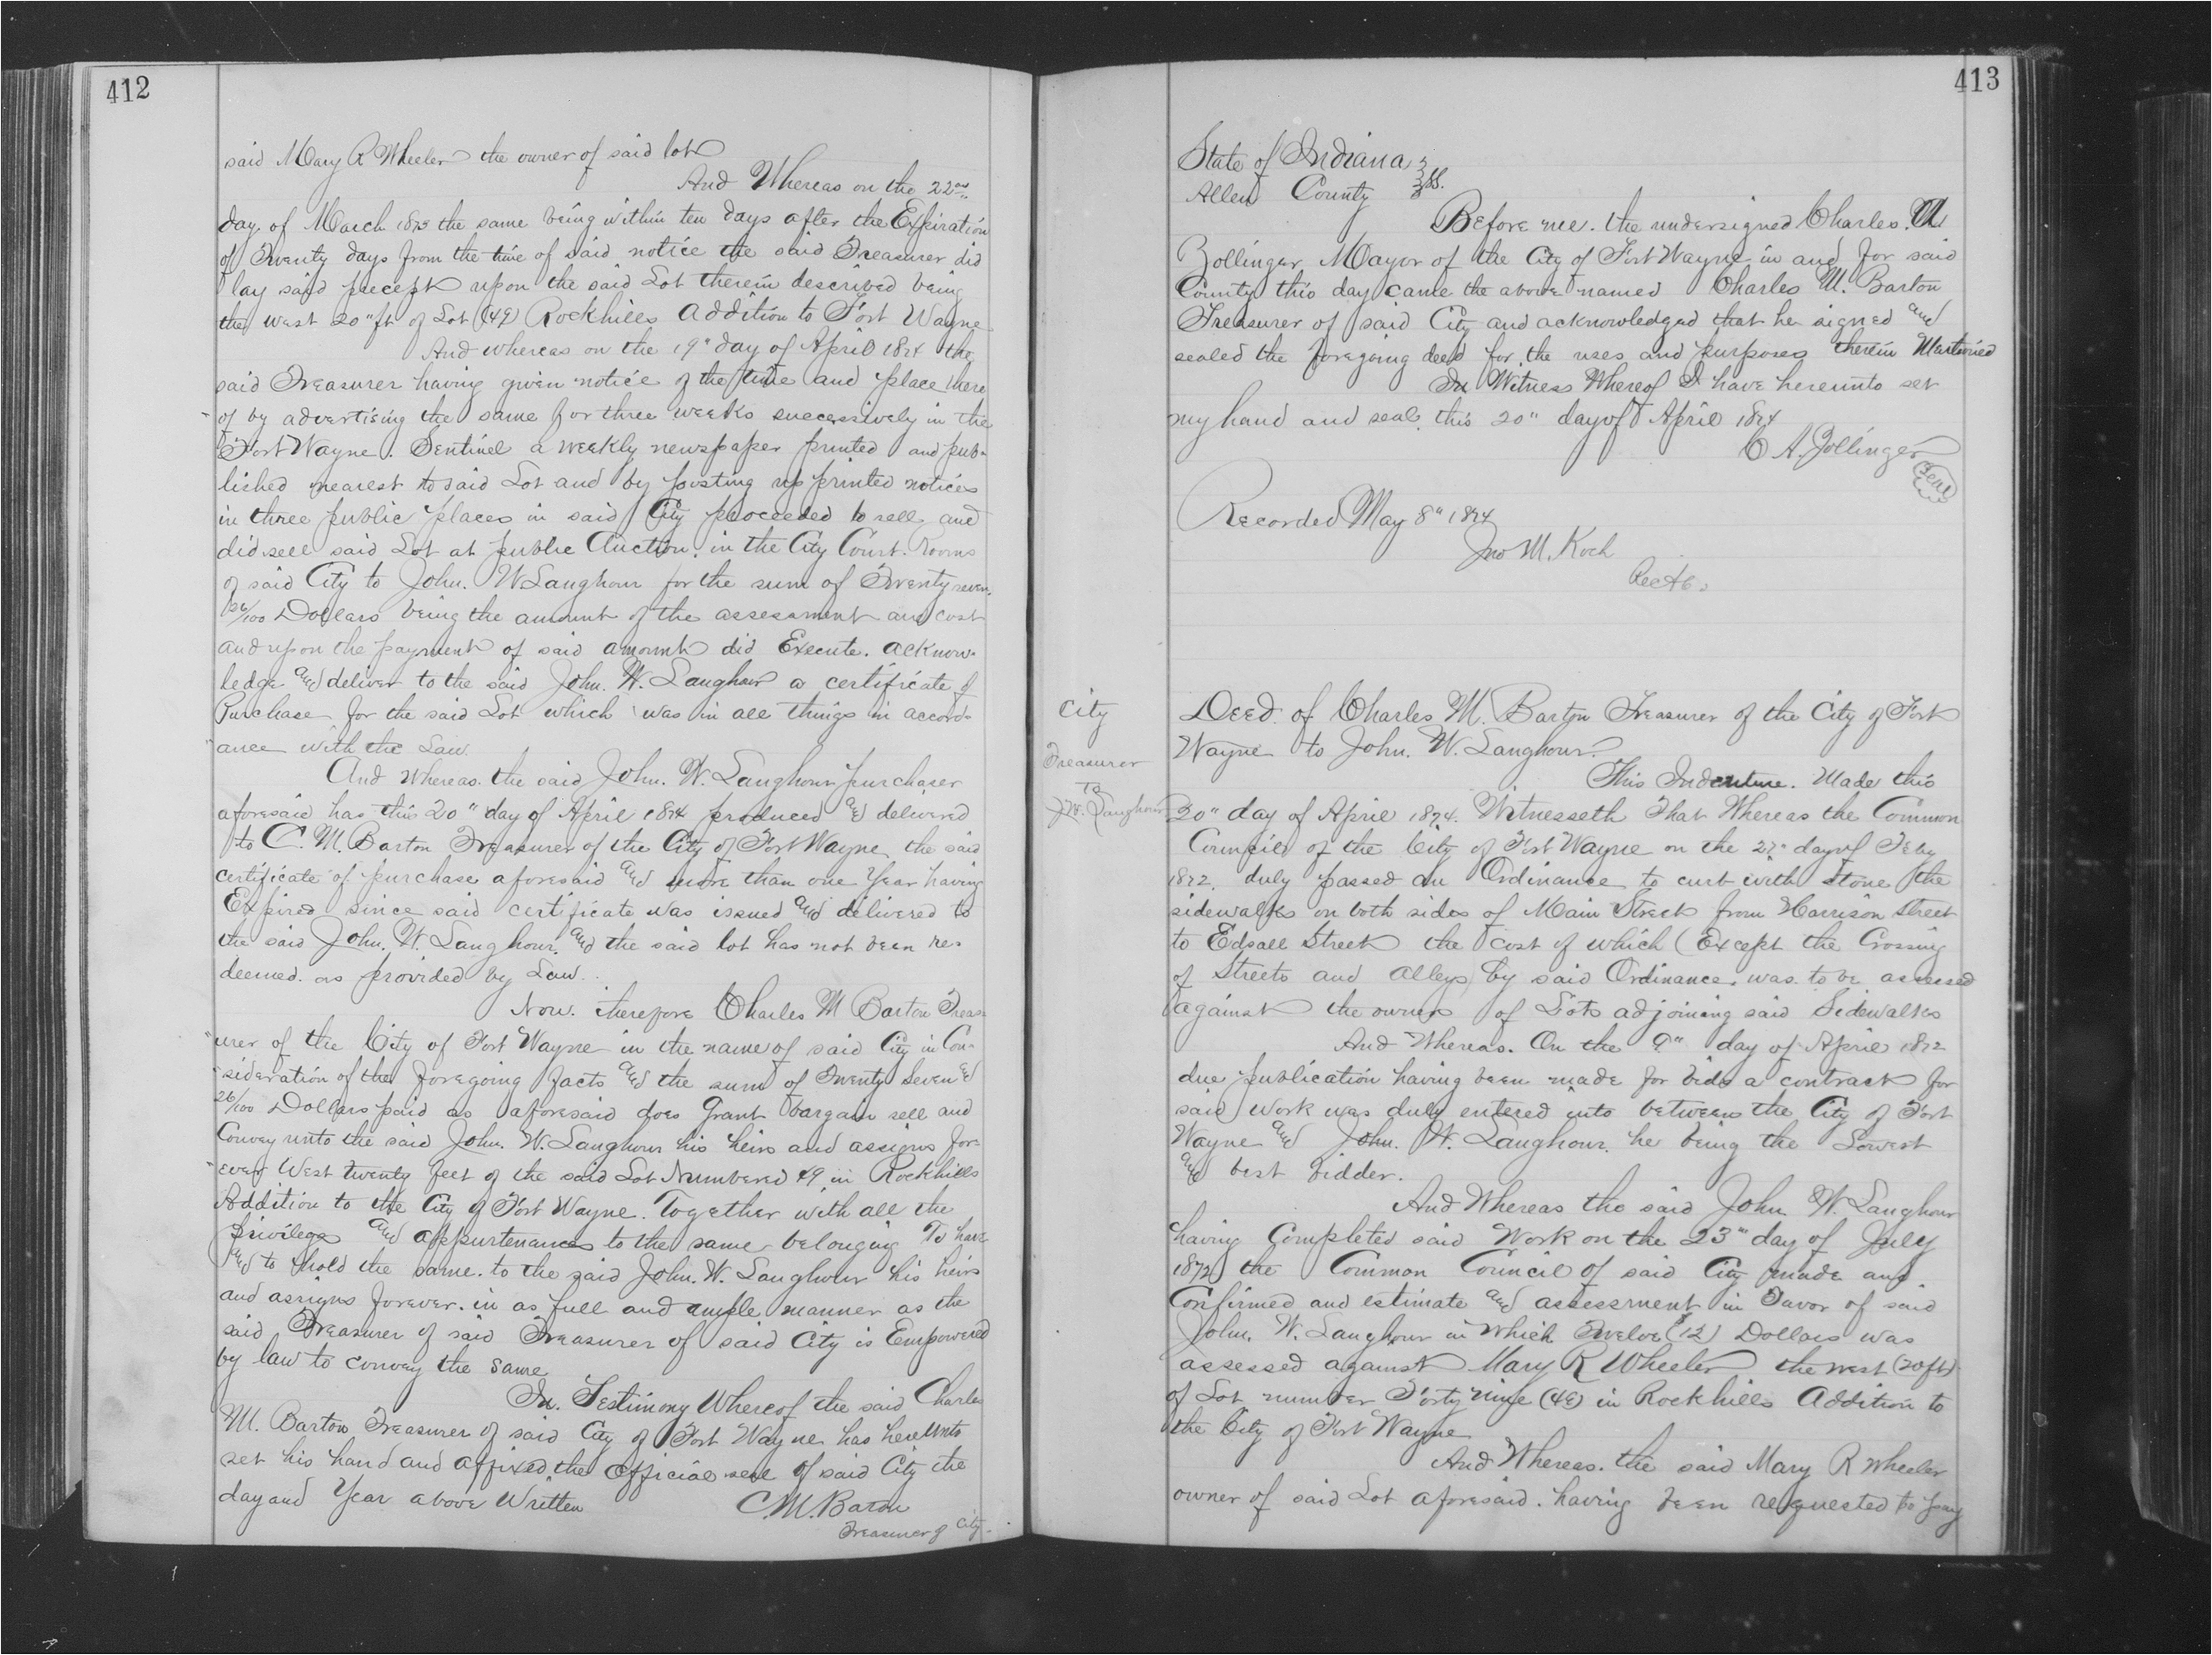 412
said Mary R Wheeler the owner of said lot
And Whereas on the 22nd
day of March 1873 the same being within ten days after the Expiration
of Twenty days from the time of said notice the said Treasurer did
lay said precept upon the said Lot therein described being
the west 20" ft of Lot (49) Rockhills Addition to Fort Wayne
And whereas on the 19" day of April 1874 the
said Treasurer having given notice of the time and place there
of by advertising the same for three weeks successively in the
Fort Wayne. Sentinel a weekly newspaper printed and pub-
lished nearest to said Lot and by posting up printed notices
in three public places in said City proceeded to sell and
did sell said Lot at public Auction. in the City Court. Rooms
of said City to John. W Langhour for the sum of Twenty seven
26/100 Dollars being the amount of the assessment and cost
and upon the payment of said amount did Execute. acknow-
ledge and deliver to the said John. W. Langhour a certificate of
Purchase for the said Lot which was in all things in accord-
ance with the Law.
And whereas. the said John. W. Langhour purchaser
aforesaid has this 20" day of April 1874 produced and delivered
to C. M. Barton Treasurer of the City of Fort Wayne the said
certificate of purchase aforesaid and more than one Year having
Expired since said certificate was issued and delivered to
the said John. W. Langhour. and the said lot has not been re-
deemed. as provided by Law.
Now. therefore Charles M Barton Treas-
urer of the City of Fort Wayne in the name of said City in Con-
sideration of the foregoing facts and the sum of Twenty Seven &
26/100 Dollars paid as aforesaid does Grant bargain sell and
Convey unto the said John. W. Langhour his heirs and assigns for-
ever West twenty feet of the said Lot Numbered 49 in Rockhills
Addition to the City of Fort Wayne. Together with all the
Privilege and appurtenances to the same belonging To have
and to hold the same. to the said John. W. Langhour his heirs
and assigns forever. in as full and ample manner as the
said Treasurer of said Treasurer of said City is Empowered
by law to convey the same
In. Testimony Whereof the said Charles
M. Barton Treasurer of said City of Fort Wayne has hereunto
set his hand and affixed the official seal of said City the
day and Year above Written
C. M. Barton
Treasurer of City.
413
State of Indiana
Allen County ss.
Before me. the undersigned Charles. A
Zollinger Mayor of the City of Fort Wayne in and for said
County this day came the above named Charles M. Barton
Treasurer of said City and acknowledged that he signed and
sealed the foregoing deed for the uses and purposes therein Mentioned
In Witness Whereof I have hereunto set
my hand and seal. this 20" day of April 1874
C A. Zollinger
Seal
Recorded May 8" 1874
Jno M. Koch
City
Treasurer
To
J. W. Langhour
Deed. of Charles M. Barton Treasurer of the City of Fort
Wayne to John. W. Langhour.
This Indenture. Made this
20" day of April 1874. Witnesseth That Whereas the Common
Council of the City of Fort Wayne on the 27" day of Feby
1872. duly passed an Ordinance to curb with stone the
sidewalks on both sides of Main Street from Harrison Street
to Edsall Street the cost of which (Except the Crossing
of Streets and Alleys) by said Ordinance. was to be assessed
against the owners of Lots adjoining said Sidewalks
And Whereas. On the 9" day of April 1872
due publication having been made for bids a contract for
said work was duly entered into between the City of Fort
Wayne and John. W. Langhour. he being the Lowest
and best bidder.
And Whereas the said John W. Langhour
having Completed said Work on the 23" day of July
1872 the Common Council of said City made and
Confirmed and estimate and assessment in Favor of said
John. W. Langhour in which Twelve ($12) Dollars was
assessed against Mary R Wheeler the west (20 ft)
of Lot number Forty nine (49) in Rockhills Addition to
the City of Fort Wayne
And Whereas. the said Mary R Wheeler
owner of said Lot aforesaid. having been requested to pay